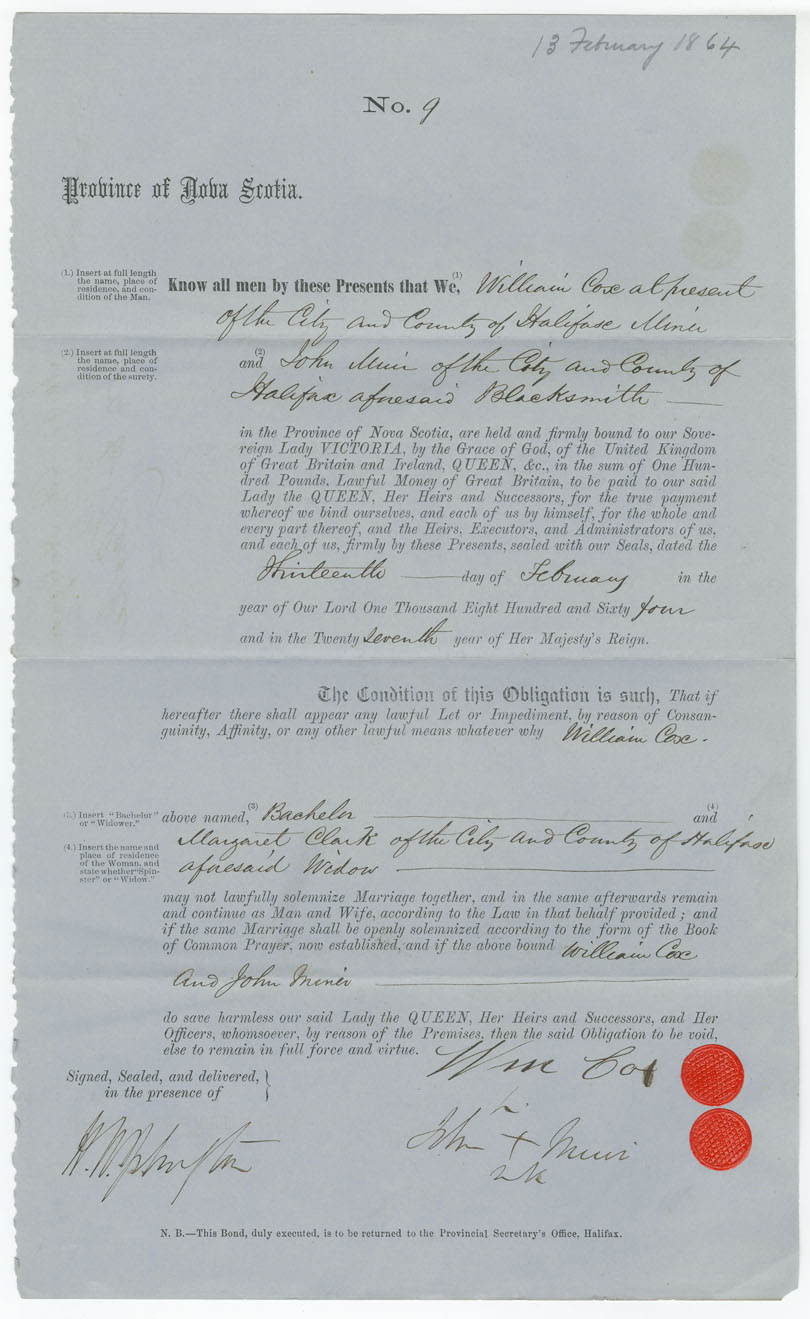 13 February 1864
No. 9
Province of Nova Scotia.
(1.) Insert at full length
the name, place of
residence, and con-
dition of the Man.
Know all men by these Presents that We, (1) William Cox at present
of the City and County of Halifax Miner
(2.) Insert at full length
the name, place of
residence and con-
dition of the surety.
and (2) John Muir of the City and County of
Halifax aforesaid Blacksmith
in the Province of Nova Scotia, are held and firmly bound to our Sove-
reign Lady VICTORIA, by the Grace of God, of the United Kingdom
of Great Britain and Ireland, QUEEN, &c., in the sum of One Hun-
dred Pounds, Lawful Money of Great Britain, to be paid to our said
Lady the QUEEN, Her Heirs and Successors, for the true payment
whereof we bind ourselves, and each of us by himself, for the whole and
every part thereof, and the Heirs, Executors, and Administrators of us,
and each of us, firmly by these Presents, sealed with our Seals, dated the
Thirteenth day of February in the
year of Our Lord One Thousand Eight Hundred and Sixty four
and in the Twenty seventh year of Her Majesty's Reign.
The Condition of this Obligation is such, That if
hereafter there shall appear any lawful Let or Impediment, by reason of Consan-
guinity, Affinity, or any other lawful means whatever why William Cox.
(3.) Insert "Bachelor"
or "Widower."
above named, (3) Bachelor and (4)
(4.) Insert the name and
place of residence
of the Woman, and
state whether "Spin-
ster" or "Widow."
Margaret Clark of the City and County of Halifax
aforesaid Widow
may not lawfully solemnize Marriage together, and in the same afterwards remain
and continue as Man and Wife, according to the Law in that behalf provided; and
if the same Marriage shall be openly solemnized according to the form of the Book
of Common Prayer, now established, and if the above bound William Cox
And John Miner
do save harmless our said Lady the QUEEN, Her Heirs and Successors, and Her
Officers, whomsoever, by reason of the Premises, then the said Obligation to be void,
else to remain in full force and virtue.
Wm Cox
Signed, Sealed, and delivered,
in the presence of
John X Muir
N. B.—This Bond, duly executed, is to be returned to the Provincial Secretary's Office, Halifax.